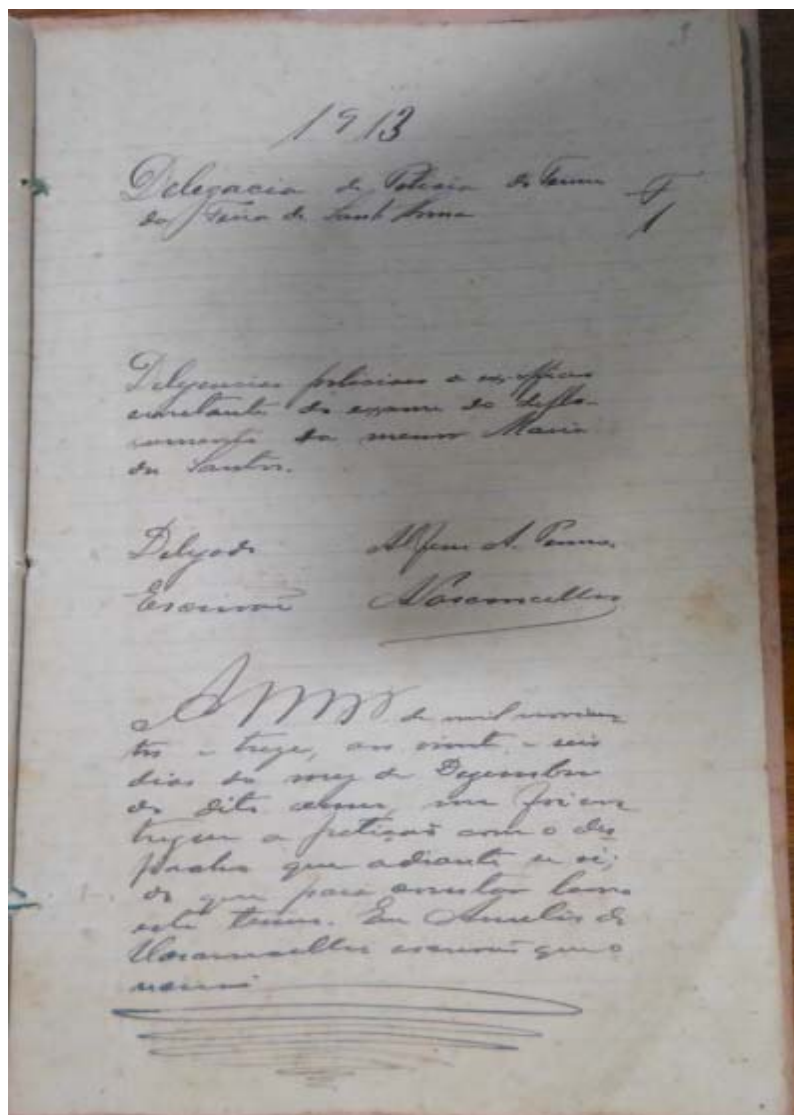 3
1913
Delegacia de Policia do Termo
da Feira de Sant'Anna
F
1
Deligencias policiaes a ex-officio
constante do exame de deflo-
ramento da menor Maria
dos Santos.
Delegado A. Penna.
Escrivão Vasconcellos
Anno de mil novecen
tos e treze, aos vinte e seis
dias do mez de Dezembro
do dito anno, me foi en
tregue a petição com o des
pacho que adiante se vê;
do que para constar lavro
este termo. Eu Aurelio de
Vasconcellos escrivão que o
escrevi